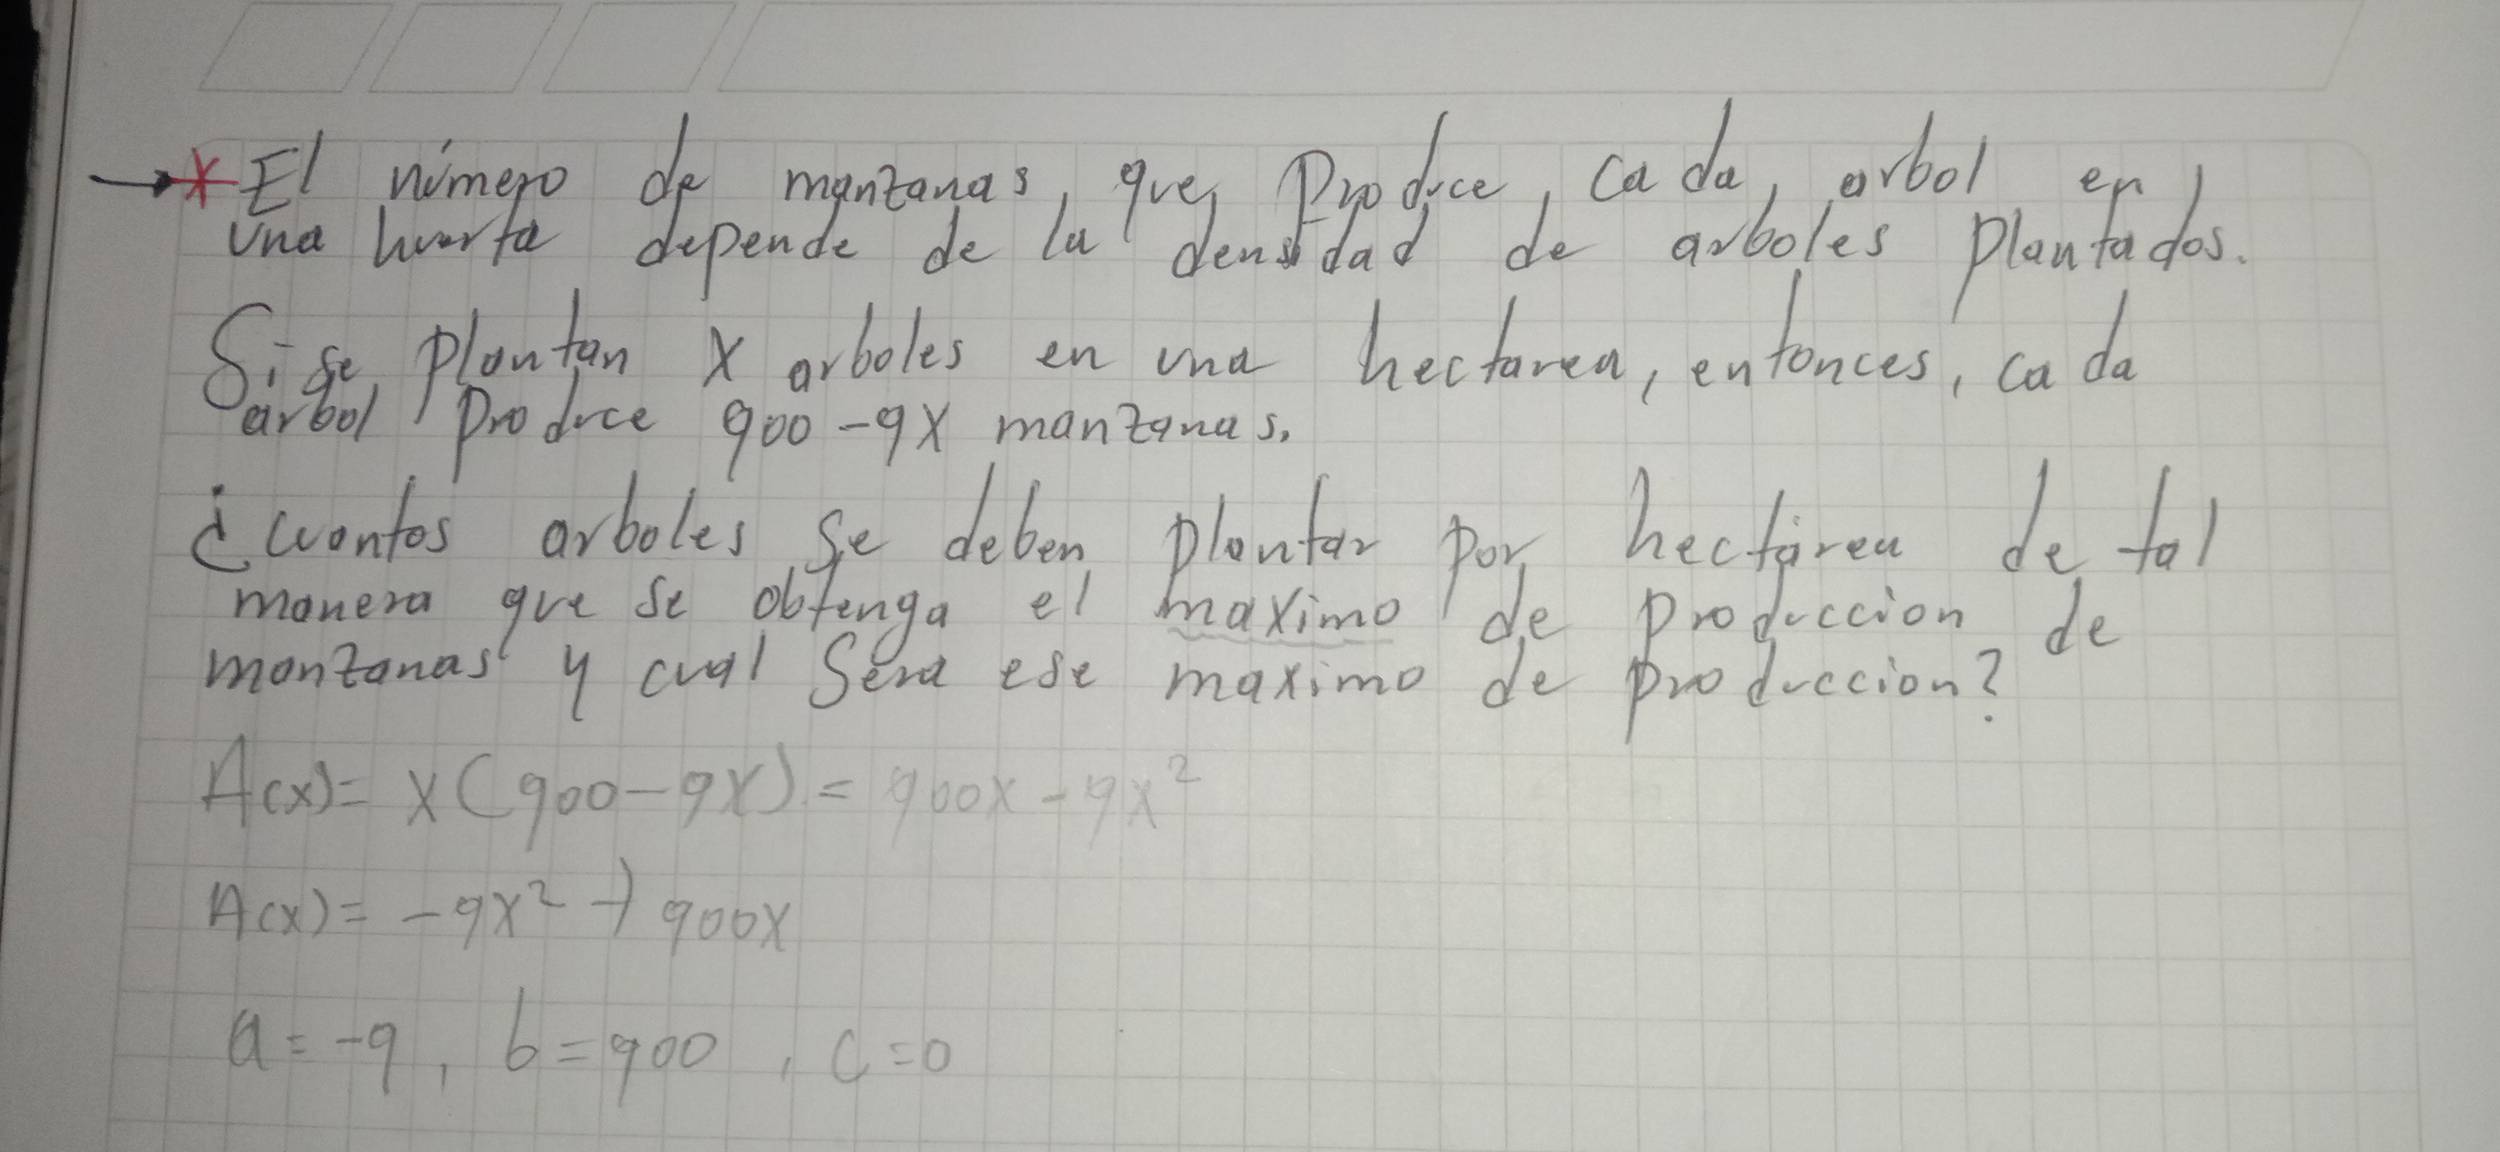 →* El número de manzanas, que, Produce, cada, arbol en
una huerta depende de la densidad de arboles plantados.
Si se, plantan x arboles en una hectarea, entonces, cada
arbol produce 900 - 9x manzanas.
¿cuantos arboles se deben plantar por hectárea de tal
manera que se obtenga el maximo de produccion de
manzanas y cual Sera ese maximo de produccion?
A(x) = x(900 - 9x) = 900x - 9x²
A(x) = -9x² + 900x
a = -9, b = 900, c = 0